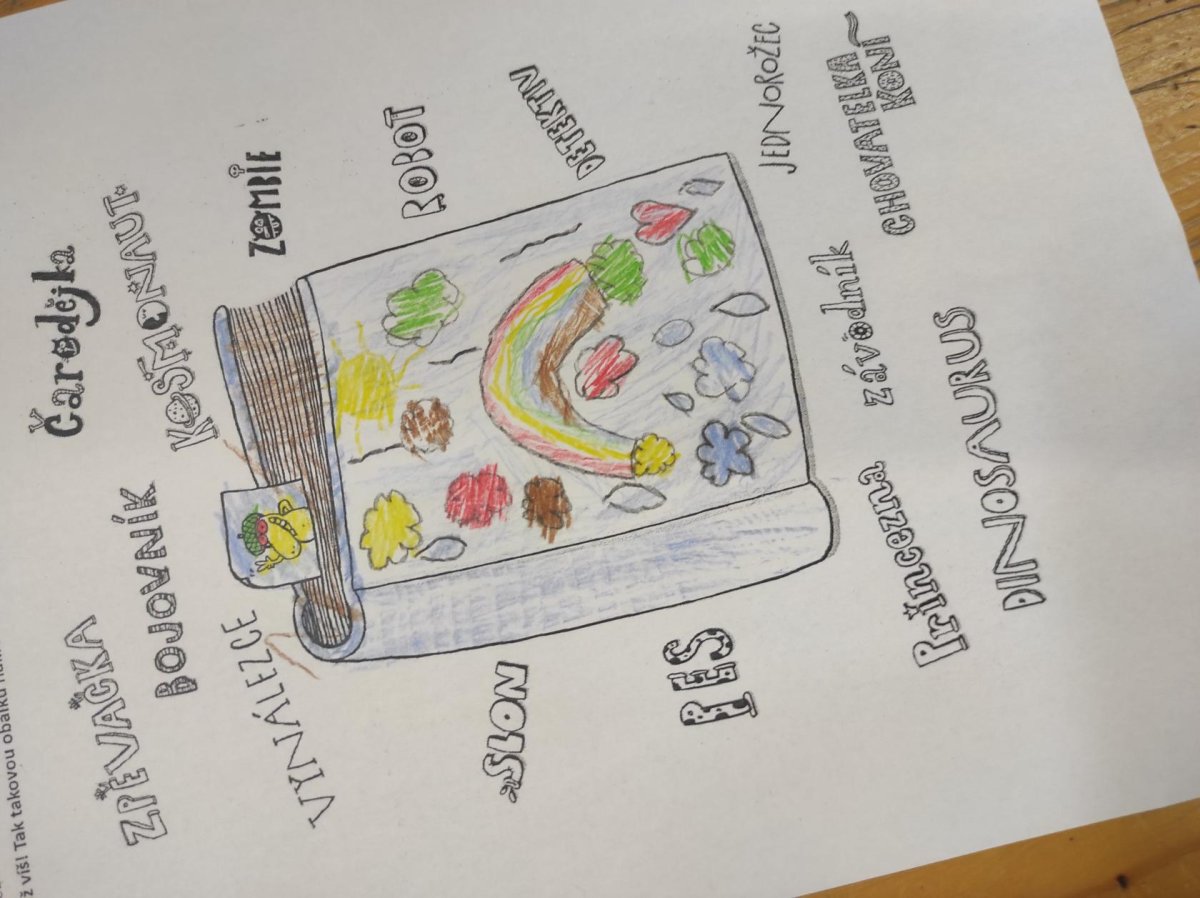 ž víš! Tak takovou obálku
Čarodějka
ZPĚVAČKA
KOSMONAUT
BOJOVNÍK
ZOMBIE
VYNÁLEZCE
ROBOT
SLON
DETEKTIV
PES
JEDNOROŽEC
závodník
CHOVATELKA
KONÍ
Princezna
DINOSAURUS